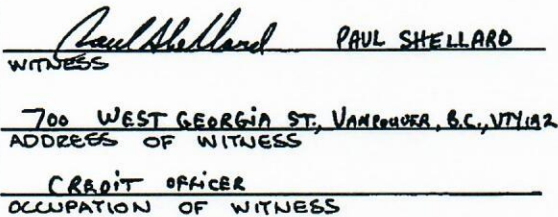 Paul Shellard PAUL SHELLARD
WITNESS
700 WEST GEORGIA ST., VANCOUVER, B.C.,
ADDRESS OF WITNESS
CREDIT OFFICER
OCCUPATION OF WITNESS